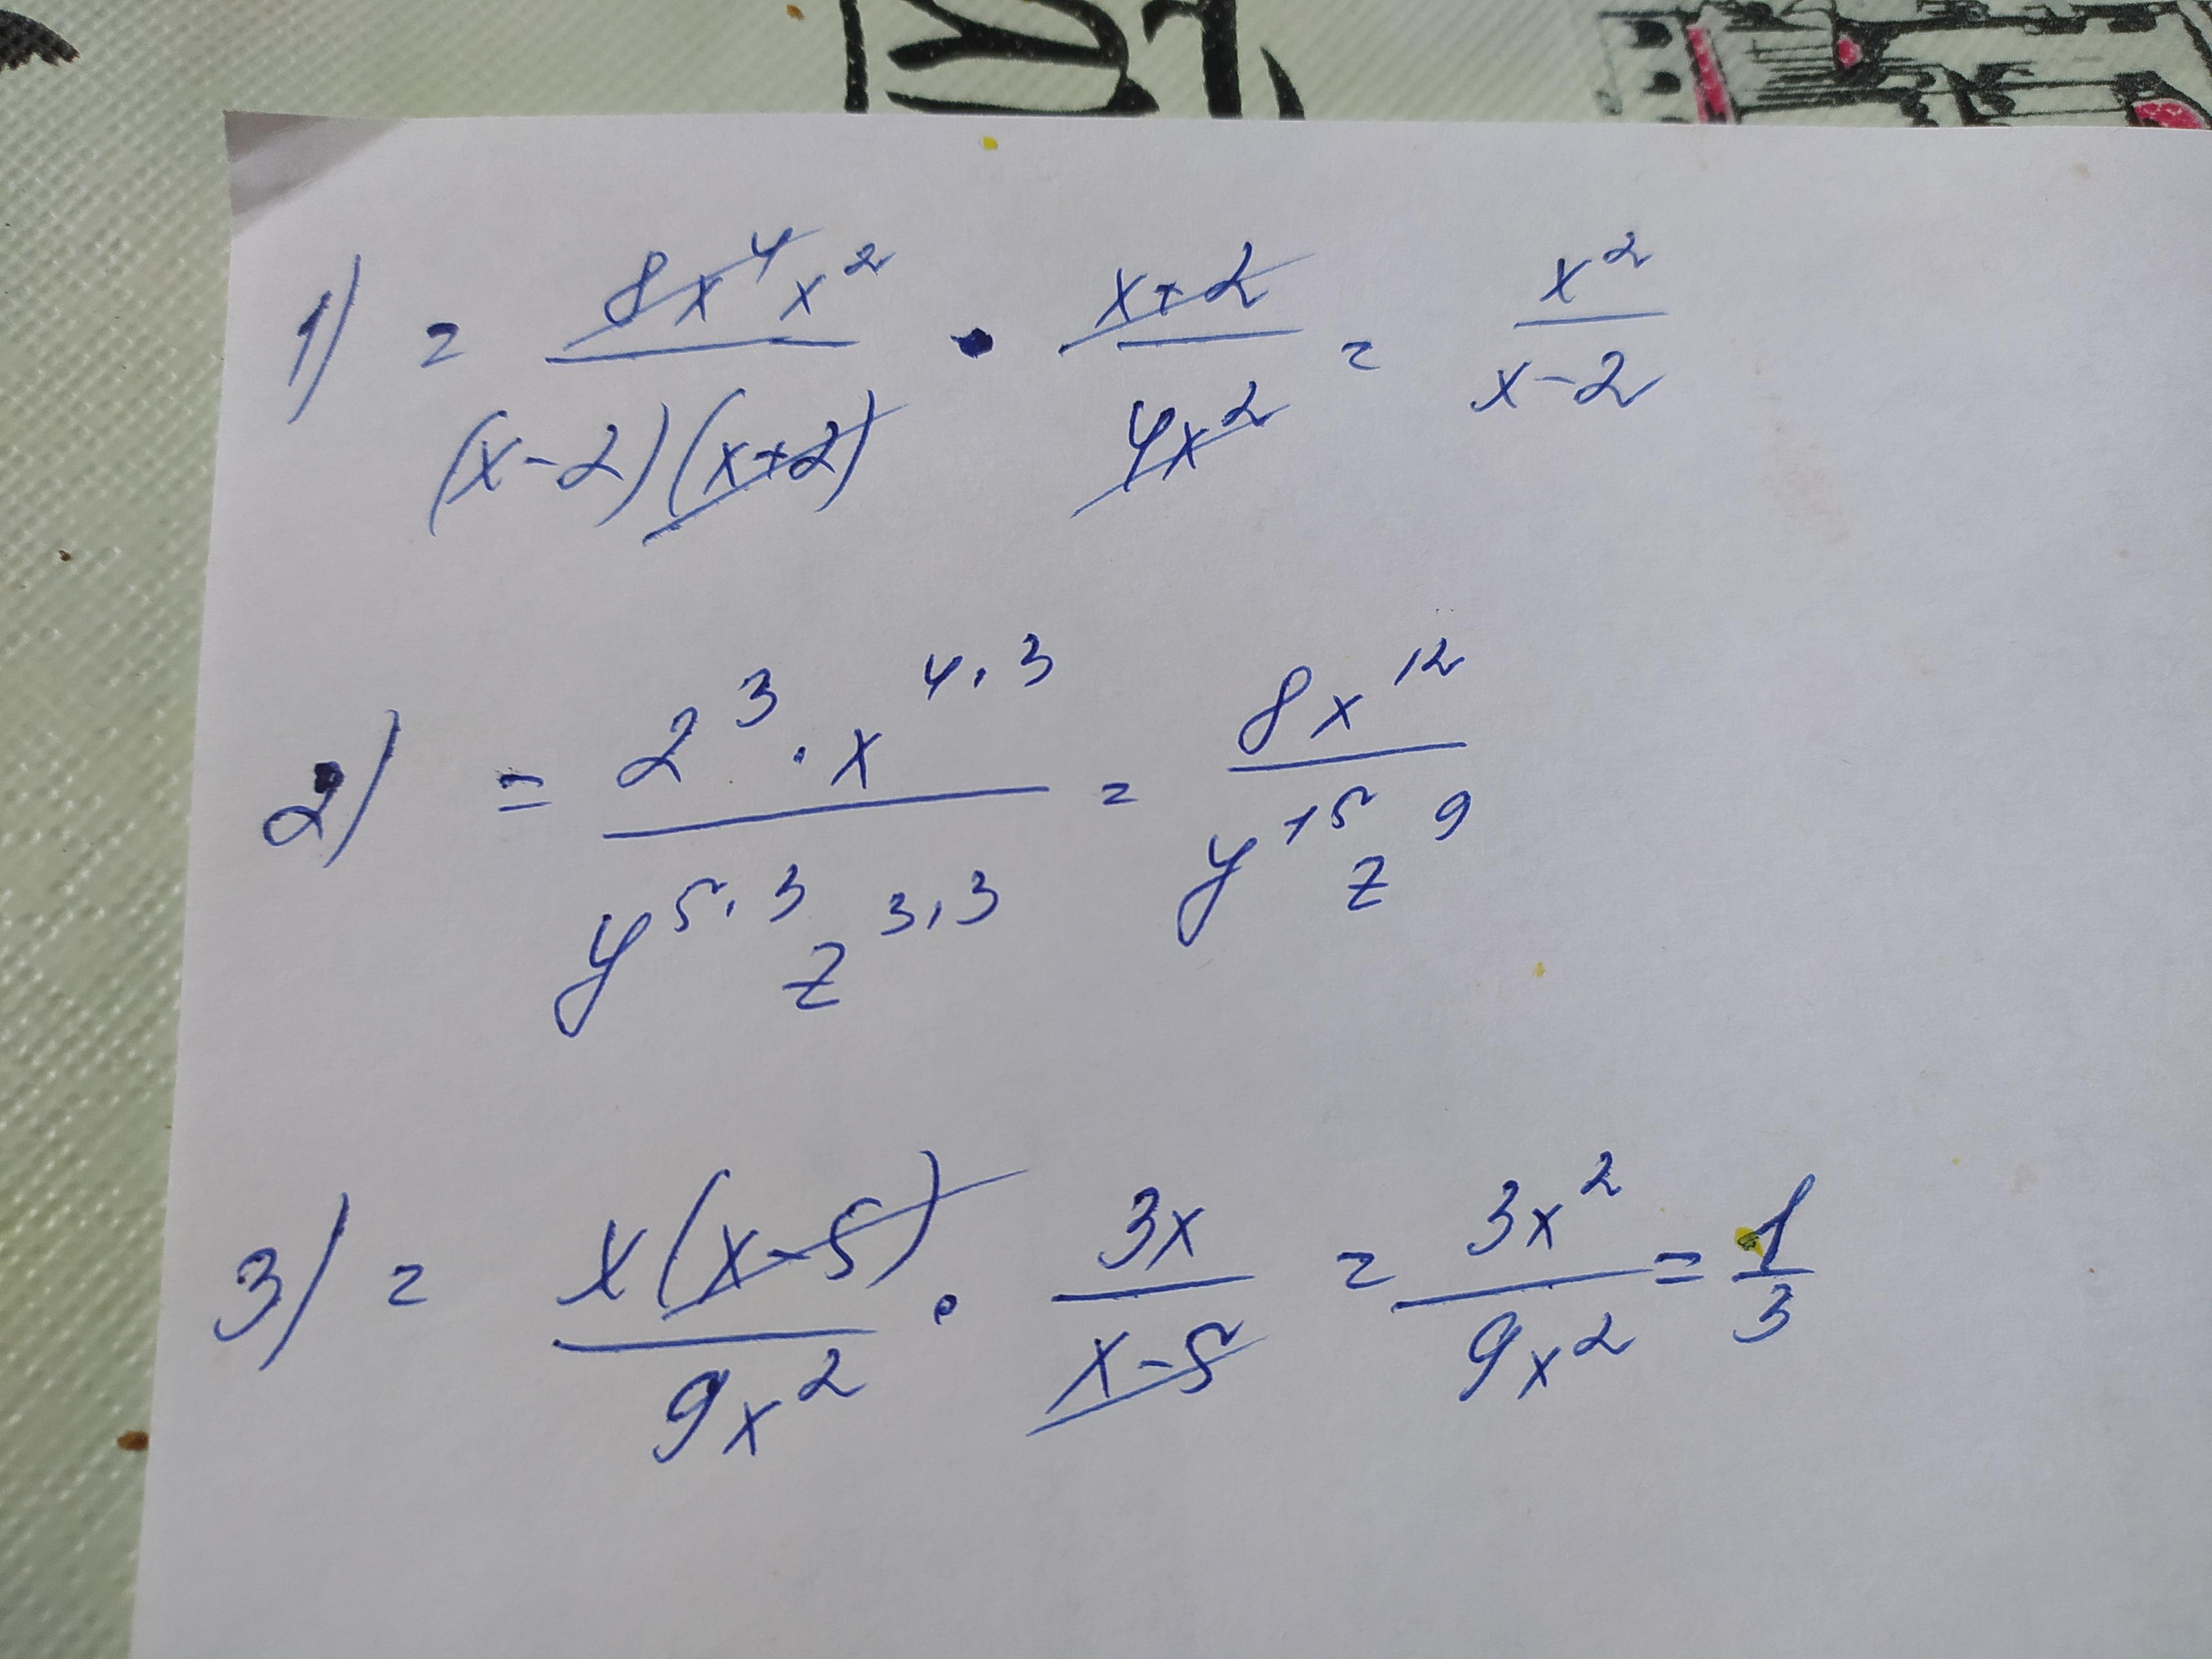 1) = 8x⁴x² / (x-2)(x+2) • x+2 / 4x² = x² / x-2
2) = 2³ · x⁴·³ / y⁵·³ z³·³ = 8x¹² / y¹⁵ z⁹
3) = x(x-5) / 9x² · 3x / x-5 = 3x² / 9x² = 1 / 3